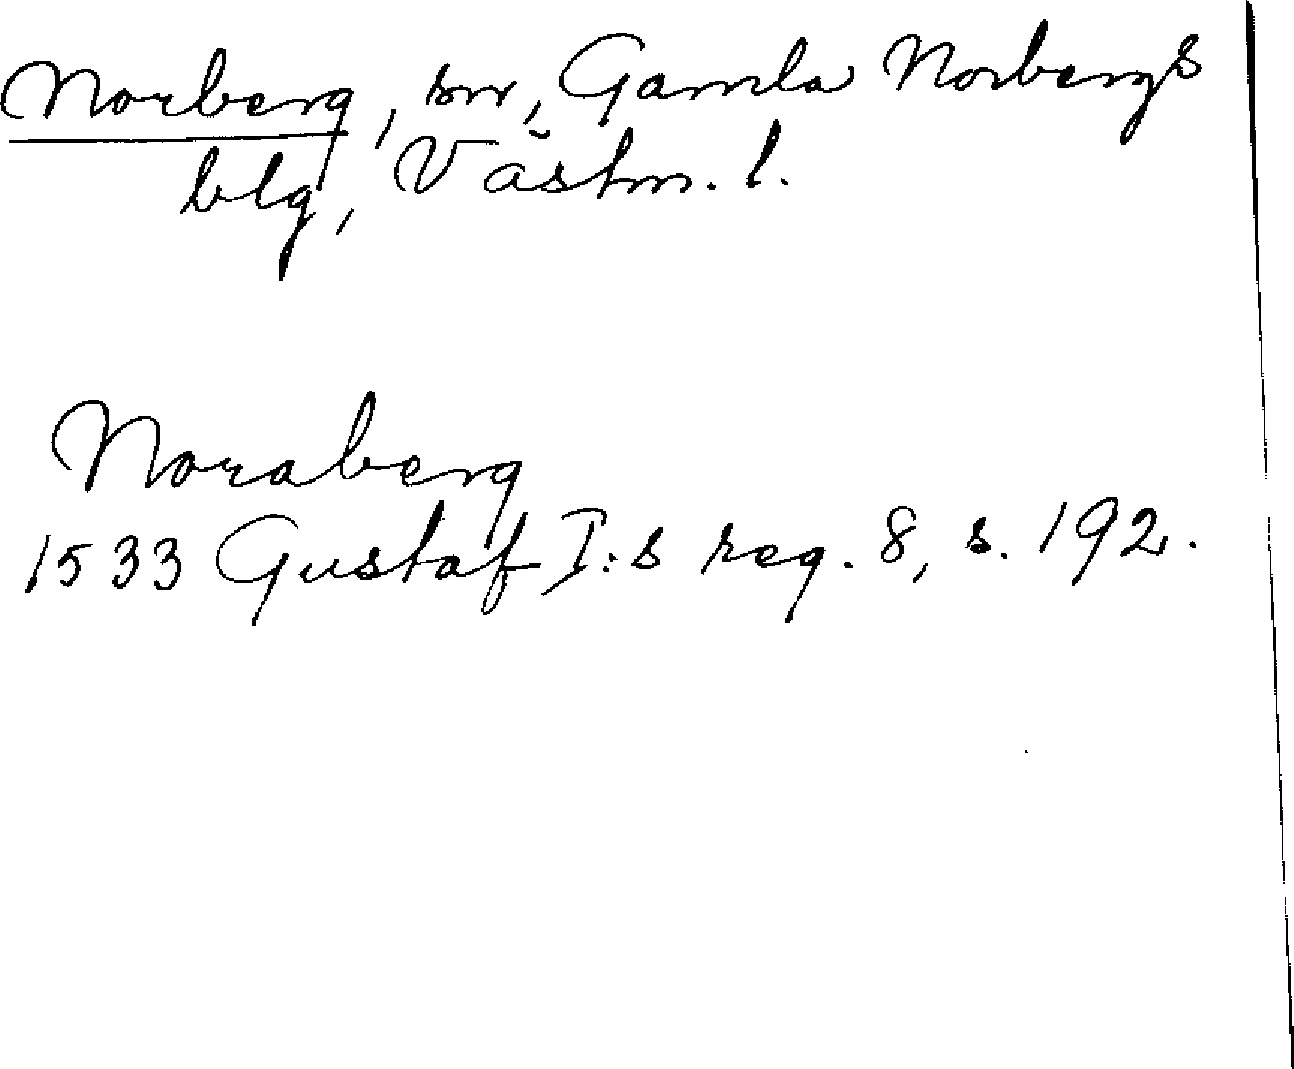 Norberg, sn, Gamla Norbergs
blg, Västm. l.
Noraberg
1533 Gustaf I:s reg. 8, s. 192.